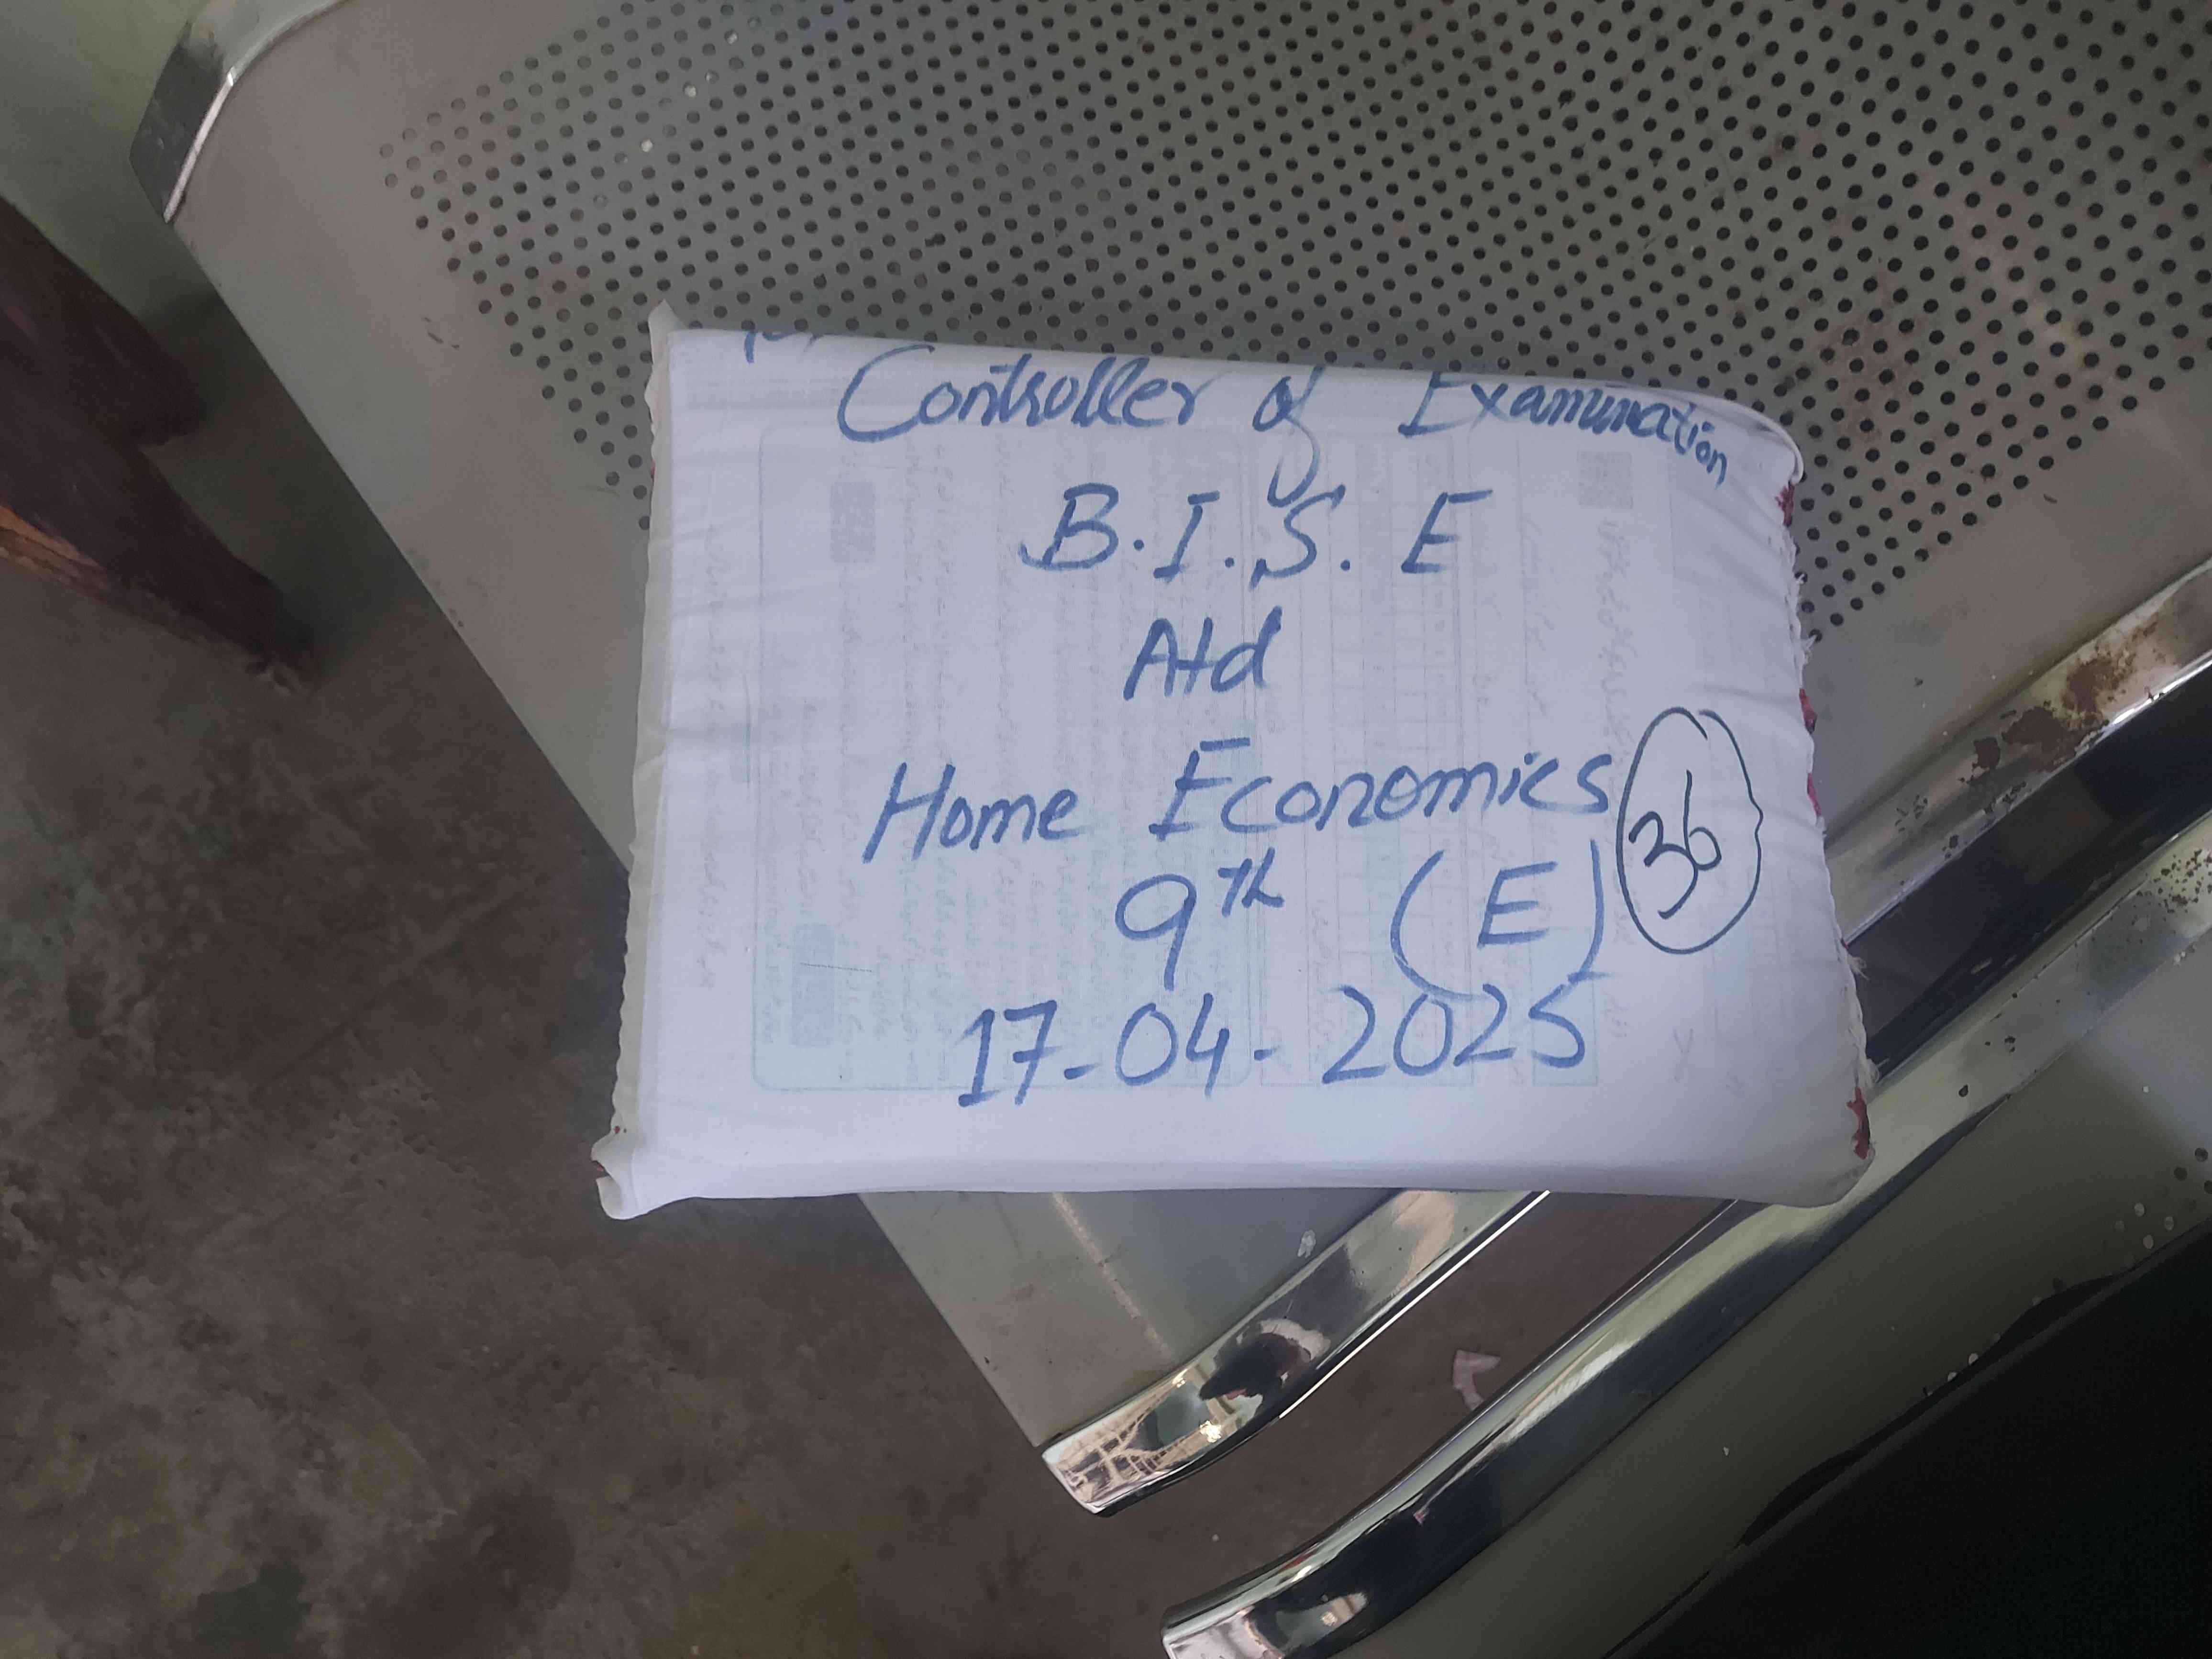 Controller of Examination
B.I.S.E
Atd
Home Economics
36
9th (E)
17-04-2025